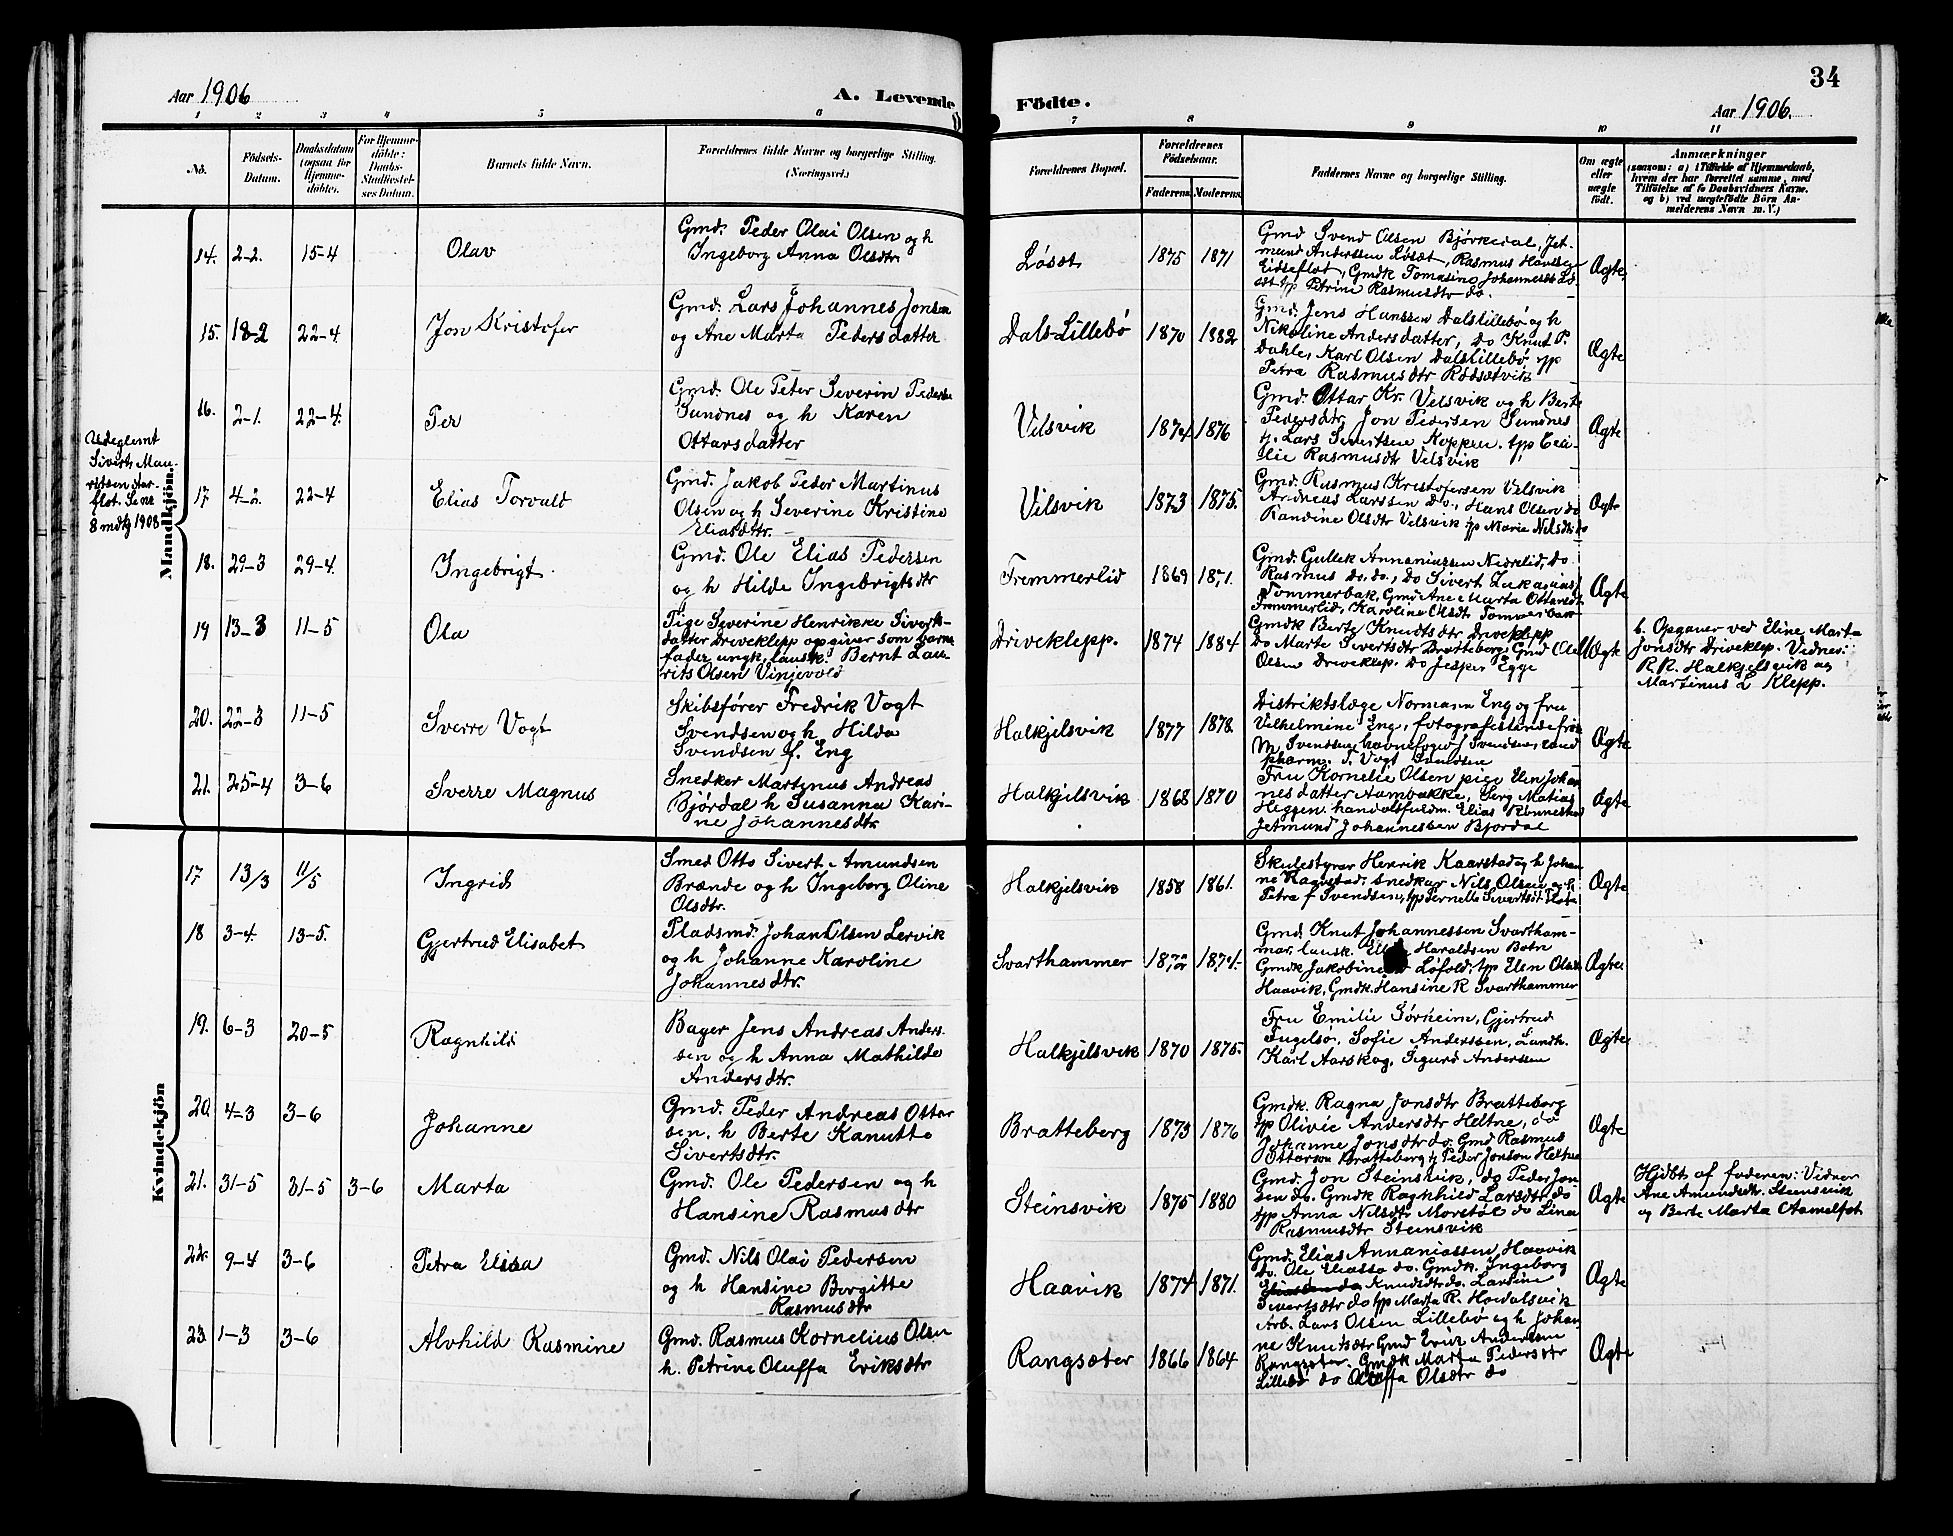 34
Aar 1906
A. Levende
Födte.
Aar 1906.
1 2 3 4 5 6 7 8 9 10 11
No.
Födsels-Datum.
Daabsdatum (ogsaa for Hjemmedöbte).
For Hjemmedöbte: Daabs-Stadfæstelses Datum.
Barnets fulde Navn.
Forældrenes fulde Navne og borgerlige Stilling.
(Næringsvei.)
Forældrenes Bopæl.
Forældrenes Födselsaar.
Faderens. Moderens.
Faddernes Navne og borgerlige Stilling.
Om ægte eller uægte født.
Anmærkninger
(saasom: a) i Tilfælde af Hjemmedaab,
hvem der har forrettet samme, med
Tilföielse af to Daabsvidners Navne.
og b) ved uægtefödte Börn An-
melderens Navn m. V.)
Mandkjön.
Udeglemt
Siverts Mau-
ritsen Aar-
flot. Sene
8 mdtg 1903
14. 2-2. 15-4
Olav
Gmd. Peder Olai Olsen og h
Ingeborg Anna Olsdtr
Løsæt 1875 1871
Gmd Svend Olsen Bjørkedal, Jet-
mund Anderssen Løsæt, Rasmus Hanssen
Eidseflot, Gmdk Tomasine Johannesdt Lø-
sæt tp Petrine Rasmusdtr do.
Ægte
15. 18-2 22-4.
Jon Kristofer
Gmd. Lars Johannes Jonsen
og Ane Marta Pedersdatter
Dals-Lillebø 1870 1882
Gmd. Jens Hanssen Dalslillebø og h
Nikoline Andersdatter, do Knut P.
Dahle, Karl Olsen Dalslillebø tp
Petra Rasmusdtr Rødsætvik
Ægte
16. 2-1. 22-4.
Per
Gmd. Ole Peter Severin Peders
Sundnes og h Karen
Ottarsdatter
Velsvik 1874 1876
Gmd. Ottar Kr. Velsvik og h Berte
Pedersdtr, Jon Pedersen Sundnes
Lars Sivertsen Koppen. tp Ceci-
lie Rasmusdtr Velsvik
Ægte
17 4-2. 22-4
Elias Torvald
Gmd. Jakob Peder Martinus
Olsen og h Severine Kristine
Eliasdtr.
Velsvik 1873 1875.
Gmd. Rasmus Kristofersen Velsvik
Andreas Larssen do., Hans Olsen do
Randine Olsdtr Velsvik tp Marie Nilsdtr do
Ægte
18. 29-3 29-4.
Ingebrigt.
Gmd. Ole Elias Pedersen
og h Hilde Ingebrigtsdtr
Tremmerlid 1869 1871.
Gmd. Gullek Annaniassen Nedrelid, do
Rasmus do. do., do Sivert Zakarias
Tommerbak, Gmd Ane Marta Ottarsdt
Tremmerlid, Karoline Olsdt Tommerbak
Ægte
19 13-3 11-5
Ola
Pige Severine Henrikke Siverts-
datter Driveklepp opgiver som barne
fader ungk, lausk. Bernt Lau-
rits Olsen Vinjevold
Driveklepp. 1874 1884
Gmdk Berte Knudtsdtr Driveklepp
do Marte Sivertsdtr Bratteberg, Gmd Ole
Olsen Driveklep. do Jesper Egge
Uægte
b. Opgaver ved Eline Marta
Jonsdtr Driveklep. Vidnes:
R R. Halkjelsvik og
Martinus L Klepp.
20. 22-3 11-5
Sverre Vogt
Skibsfører Fredrik Vogt
Svendsen og h Hilda
Svendsen f. Eng
Halkjelsvik 1877 1878.
Distriktslæge Normann Eng og fru
Vilhelmine Eng, fotografistinde frøk
M Svendsen, havnefoged J Svendsen, cand
pharm. T. Vogt Svendsen
Ægte
21. 25-4 3-6
Sverre Magnus
Snedker Martinus Andreas
Bjørdal h Susanna Kari-
ne Johannesdtr.
Halkjelsvik 1868 1870
Fru Kornelie Olsen pige Elen Johan
nesdatter Aambakke, Serg Matias
Heggen. handelsfuldm. Elias Rønnestad
Jetmund Johannessen Bjørdal
Ægte
Kvindekjön
17 13/3 11/5
Ingrid
Smed Otto Sivert Amundsen
Brænde og h Ingeborg Oline
Olsdtr.
Halkjelsvik 1858 1861.
Skulestyrar Henrik Kaarstad og h Johan
ne Kaarstad, snedker Nils Olsen og h
Petra f Svendsen, tp Pernelle Sivertsdt Fløta
Ægte
18 3-4. 13-5.
Gjertrud Elisabet
Pladsmd. Johan Olsen Lervik
og h Johanne Karoline
Johannesdtr.
Svarthammer 1872 1874.
Gmd. Knut Johannessen Svartham-
mar, lausk. Haraldsen Botn
Gmdk Jakobine Løfold, tp Elen Olsdt
Haavik, Gmdk. Hansine R Svarthammer
Ægte.
19. 6-3 20-5
Ragnhild
Bager Jens Andreas Anders-
sen og h Anna Mathilde
Andersdtr.
Halkjelsvik 1870 1875.
Fru Emilie Sørheim, Gjertrud
Fugelsø, Sofie Anderssen, Landh.
Karl Aarskog, Sigurd Andersen
Ægte
20. 4-3 3-6
Johanne
Gmd. Peder Andreas Ottar
sen. h Berte Kanutte
Sivertsdtr.
Bratteberg 1873 1876
Gmdk. Ragna Jonsdtr Bratteberg
tp Olivie Andersdtr Heltne, do
Johanne Jonsdtr do. Gmd Rasmus
Ottarson Bratteberg, Peder Jonson Heltne
Ægte
21. 31-5 31-5 3-6
Marta
Gmd. Ole Pedersen og h
Hansine Rasmusdtr
Steinsvik 1875 1880
Gmd. Jon Steinsvik, do Peder Jon
sen do. Gmdk Ragnhild Larsdtr do
tp Anna Nilsdtr Morstøl do Lina
Rasmusdtr Steinsvik
Ægte
Hjdbt af faderen: Vidner
Ane Amundsdt. Steinsvik
og Berte Marta Aamelfot
22. 9-4 3-6
Petra Elisa
Gmd. Nils Olai Pedersen
og h Hansine Borgitte
Rasmusdtr
Haavik 1874 1871.
Gmd. Elias Annaniassen, Haavik
do. Ole Eliassø do. Gmdk. Ingeborg
Knudsdtr do. Lansine
Sivertsdtr do tp Marta R. Hovdalsvik
Ægte
23. 1-3 3-6
Alvhild Rasmine
Gmd. Rasmus Kornelius Olsen
h. Petrine Oluffa Eriksdtr
Rangsæter 1866 1864
Arb. Lars Olsen Lillebø og h Johan-
ne Knutsdtr Gmd Erik Andersen
Rangsæter. Gmdk Marta Pedersdtr
Lillebø do Oluffa Olsdtr do
Ægte